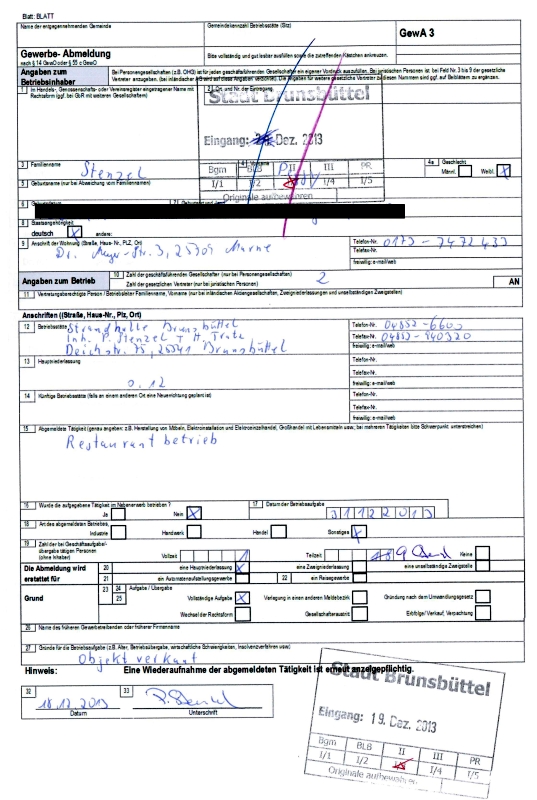 Blatt: BLATT
Name der entgegennehmenden Gemeinde
Gemeindekennzahl Betriebsstätte (Sitz)
GewA 3
Gewerbe- Abmeldung
nach § 14 GewO oder § 55 c GewO
Bitte vollständig und gut lesbar ausfüllen sowie die zutreffenden Kästchen ankreuzen.
Angaben zum Betriebsinhaber
Bei Personengesellschaften (z.B. OHG) ist für jeden geschäftsführenden Gesellschafter ein eigener Vordruck auszufüllen. Bei juristischen Personen ist bei Feld Nr. 3 bis 9 der gesetzliche
Vertreter anzugeben. (bei inländischer AG wird auf diese Angaben verzichtet). Die Angaben für weitere gesetzliche Vertreter zu diesen Nummern sind ggf. auf Beiblättern zu ergänzen.
1 Im Handels-, Genossenschafts- oder Vereinsregister eingetragener Name mit
Rechtsform (ggf. bei GbR mit weiteren Gesellschaftern)
2 Ort und Nr. der Eintragung
Stadt Brunsbüttel
Eingang: Dez. 2013
Bgm BLB II III PR
I/1 I/2 I/4 I/5
Originale aufbewahren
3 Familienname
Stenzel
4 Vorname
4a Geschlecht
Männl. Weibl. X
5 Geburtsname (nur bei Abweichung vom Familiennamen)
6 Geburtsdatum
8 Staatsangehörigkeit
deutsch X andere:
9 Anschrift der Wohnung (Straße, Haus-Nr., PLZ, Ort)
Dr. Meyer-Str. 3, 25709 Marne
Telefon-Nr. 0173-7472433
Telefax-Nr.
freiwillig: e-mail/web
Angaben zum Betrieb
10 Zahl der geschäftsführenden Gesellschafter (nur bei Personengesellschaften)
Zahl der gesetzlichen Vertreter (nur bei juristischen Personen)
2
AN
11 Vertretungsberechtigte Person / Betriebsleiter Familienname, Vorname (nur bei inländischen Aktiengesellschaften, Zweigniederlassungen und unselbständigen Zweigstellen)
Anschriften ((Straße, Haus-Nr., Plz, Ort)
12 Betriebsstätte
Strandhalle Brunsbüttel
Inh. P. Stenzel + H.
Deichstr. 75, 25541 Brunsbüttel
Telefon-Nr. 04852-6600
Telefax-Nr. 04852-940320
freiwillig: e-mail/web
13 Hauptniederlassung
o. 12
Telefon-Nr.
Telefax-Nr.
freiwillig: e-mail/web
14 Künftige Betriebsstätte (falls an einem anderen Ort eine Neuerrichtung geplant ist)
Telefon-Nr.
Telefax-Nr.
freiwillig: e-mail/web
15 Abgemeldete Tätigkeit (genau angeben: z.B. Herstellung von Möbeln, Elektroinstallation und Elektroeinzelhandel, Großhandel mit Lebensmitteln usw.; bei mehreren Tätigkeiten bitte Schwerpunkt unterstreichen)
Restaurant betrieb
16 Wurde die aufgegebene Tätigkeit im Nebenerwerb betrieben?
Ja Nein X
17 Datum der Betriebsaufgabe
31122013
18 Art des abgemeldeten Betriebes:
Industrie Handwerk Handel Sonstiges X
19 Zahl der bei Geschäftsaufgabe/-
übergabe tätigen Personen
(ohne Inhaber)
Vollzeit 1 Teilzeit Keine
Die Abmeldung wird erstattet für
20 eine Hauptniederlassung X eine Zweigniederlassung eine unselbständige Zweigstelle
21 ein Automatenaufstellungsgewerbe 22 ein Reisegewerbe
Grund
23 24 Aufgabe / Übergabe
25 Vollständige Aufgabe X Verlegung in einen anderen Meldebezirk Gründung nach dem Umwandlungsgesetz
Wechsel der Rechtsform Gesellschafteraustritt Erbfolge/ Verkauf, Verpachtung
26 Name des früheren Gewerbetreibenden oder früherer Firmenname
27 Gründe für die Betriebsaufgabe (z.B. Alter, Betriebsübergabe, wirtschaftliche Schwierigkeiten, Insolvenzverfahren usw.)
Objekt verkauft
Hinweis: Eine Wiederaufnahme der abgemeldeten Tätigkeit ist erneut anzeigepflichtig.
32 18.12.2013
Datum
33 P. Stenzel
Unterschrift
Stadt Brunsbüttel
Eingang: 19. Dez. 2013
Bgm BLB II III PR
I/1 I/2 I/4 I/5
Originale aufbewahren